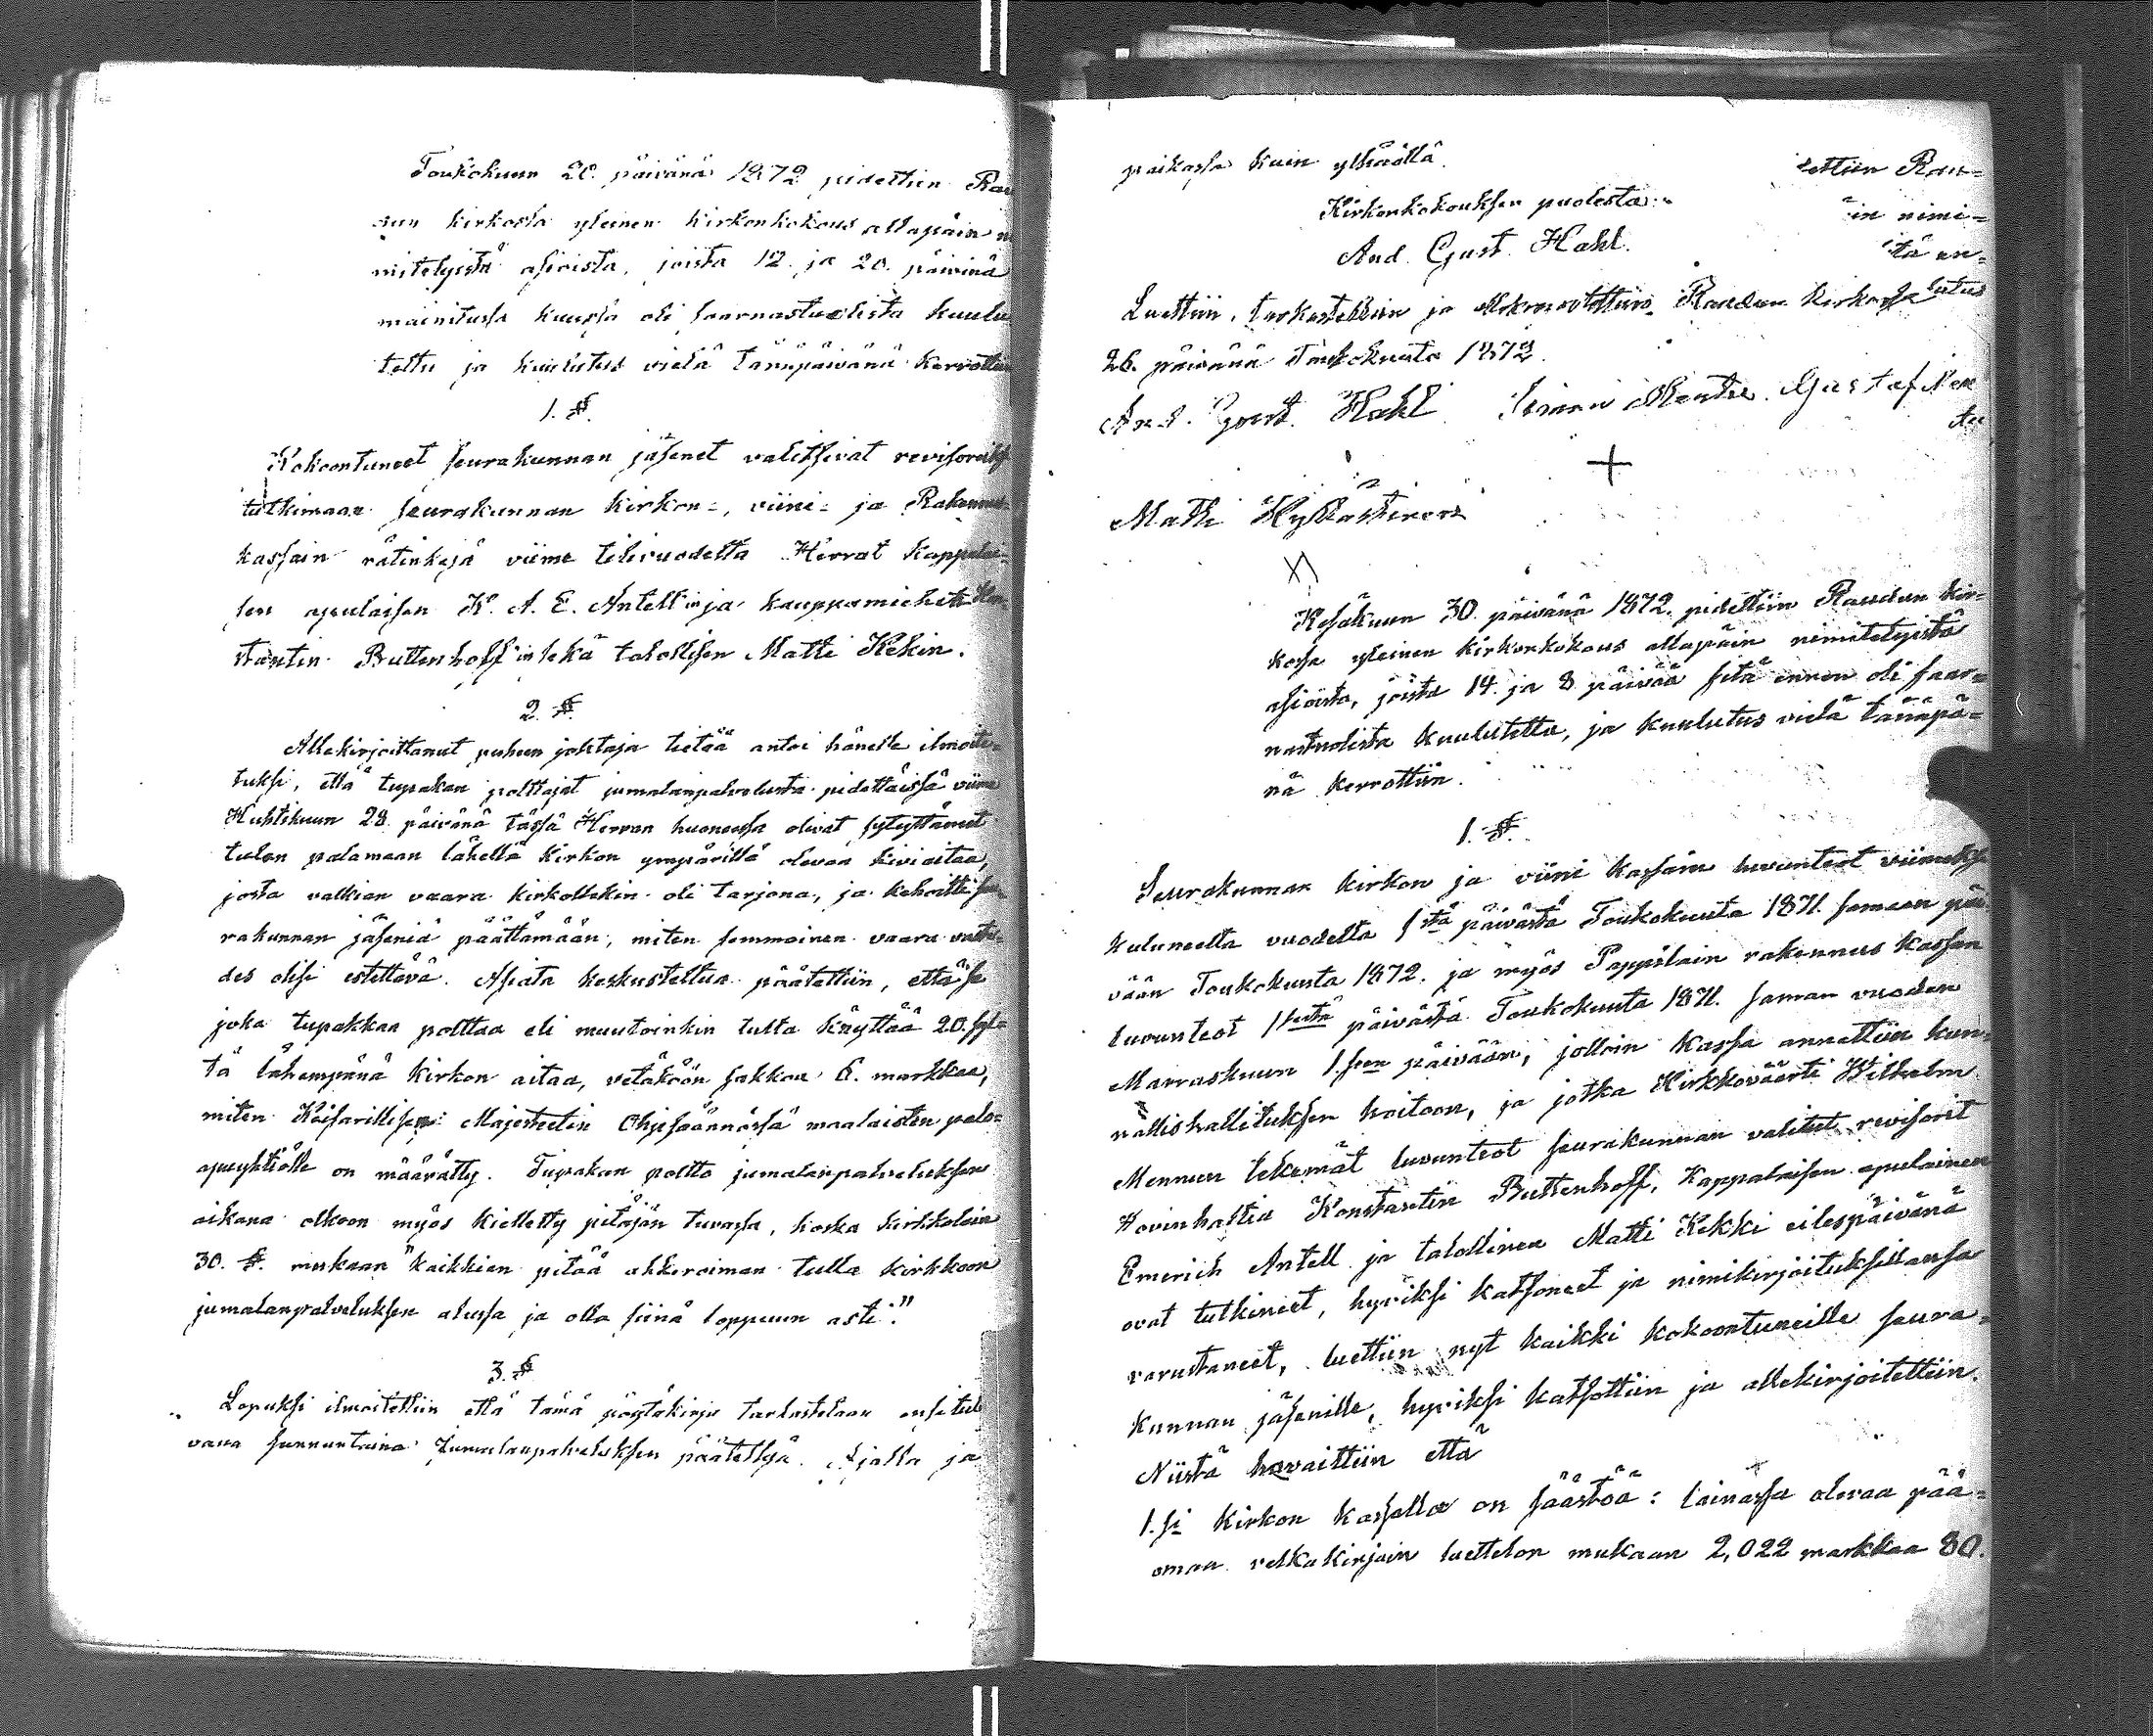 Toukokuun 20. päivänä 1872 pidettiin Rau
dun kirkossa yleinen kirkonkokous allapäin ni
mitetyistä asioista, joista 12. ja 20. päivinä
mainitussa kuussa oli saarnastuolista kuulu
tettu ja kuulutus vielä tänäpäivänä kerrottiin
1. §.
Kokoontuneet seurakunnan jäsenet valitsivat revisoreiksi
tutkimaan seurakunnan kirkon-, viini- ja Rakennus-
kassain rätinkejä viime tilivuodelta Herrat kappalai-
sen apulaisen K. A. E. Antell'in ja kauppamiehen Kon-
stantin Buttenhoff'in sekä talollisen Matti Kekin.
2. §.
Allekirjoittanut puheen johtaja tietää antoi hänelle ilmoite-
tuksi, että tupakan polttajat jumalanpalvelusta pidettäissä viime
Huhtikuun 28. päivänä tässä Herran huoneessa olivat sytyttäneet
tulen palamaan lähellä kirkon ympärillä olevaa kiviaitaa,
josta valkian vaara kirkollekin oli tarjona, ja kehoitti seu
rakunnan jäseniä päättämään, miten semmoinen vaara vastu-
des olisi estettävä. Asiata keskusteltua päätettiin, että se
joka tupakkaa polttaa eli muutoinkin tulta käyttää 20. syl-
tä lähempänä kirkon aitaa, vetäköön sakkoa 6. markkaa,
miten Keisarillisen Majesteetin Ohjesäännössä maalaisten palo-
apuyhtiölle on määrätty. Tupakan poltto jumalanpalveluksen
aikana olkoon myös kielletty pitäjän tuvassa, koska kirkkolain
30. §. mukaan "kaikkien pitää ahkeroiman tulla kirkkoon
jumalanpalveluksen alussa ja olla siinä loppuun asti."
3. §
Lopuksi ilmoitettiin että tämä pöytäkirja tarkastetaan ensitule
vana sunnuntaina Jumalanpalveluksen päätettyä. Ajalla ja
paikassa kuin ylhäällä.
Kirkonkokouksen puolesta:
And. Gust. Hahl.
ettiin Rau-
in nimi-
tä en-
lutus
Luettiin, tarkastettiin ja Raudun kirkossa
26. päivänä Toukokuuta 1872.
And. Gust. Hahl Gustaf
Matti
X)
Kesäkuun 30. päivänä 1872. pidettiin Raudun kir-
kossa yleinen kirkonkokous allapäin nimitetyistä
asioista, joista 14. ja 8 päivää sitä ennen oli saar-
nastuolista kuulutettu, ja kuulutus vielä tänäpä-
nä kerrottiin.
1. §.
Seurakunnan kirkon ja viini kassain luvunteot viimeksi
kuluneelta vuodelta 1stä päivästä Toukokuuta 1871. samaan päi
vään Toukokuuta 1872. ja myös Pappilain rakennus kassan
luvunteot 1 päivästä Toukokuuta 1871. saman vuoden
Marraskuun 1.sen päivään, jolloin kassa annettiin kun-
nallishallituksen hoitoon, ja jotka Kirkkoväärti Wilhelm
Mennun tekemät luvunteot seurakunnan valitut revisorit
Hovinhaltia Konstantin Buttenhoff, Kappalaisen apulainen
Emerich Antell ja talollinen Matti Kekki eilespäivänä
ovat tutkineet, hyviksi katsoneet ja nimikirjoituksillansa
varustaneet, luettiin nyt kaikki kokoontuneille seura-
kunnan jäsenille, hyviksi katsottiin ja allekirjoitettiin.
Niistä havaittiin että
1.si Kirkon kassalla on säästöä: lainassa olevaa pää-
omaa velkakirjain luettelon mukaan 2,022 markkaa 80.